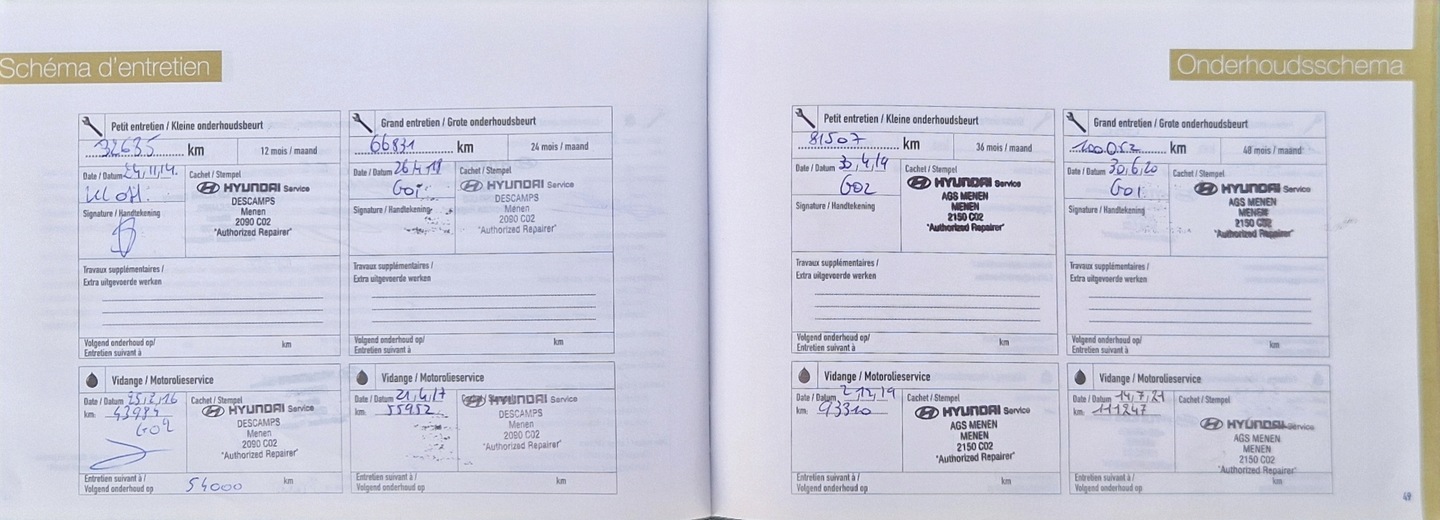 Schéma d'entretien
Petit entretien / Kleine onderhoudsbeurt
32635 km
12 mois / maand
Date / Datum 24,11,14.
Cachet / Stempel
HYUNDAI Service
DESCAMPS
Menen
2090 C02
"Authorized Repairer"
Signature / Handtekening
Travaux supplémentaires /
Extra uitgevoerde werken
Volgend onderhoud op/
Entretien suivant à
km
Grand entretien / Grote onderhoudsbeurt
66831 km
24 mois / maand
Date / Datum 26,4,18
Cachet / Stempel
G01
HYUNDAI Service
DESCAMPS
Menen
2090 C02
"Authorized Repairer"
Signature / Handtekening
Travaux supplémentaires /
Extra uitgevoerde werken
Volgend onderhoud op/
Entretien suivant à
km
Vidange / Motorolieservice
Date / Datum 25,2,16
Cachet / Stempel
km: 43984
G02
HYUNDAI Service
DESCAMPS
Menen
2090 C02
"Authorized Repairer"
Entretien suivant à /
Volgend onderhoud op
54000 km
Vidange / Motorolieservice
Date / Datum 21,4,17
km: 55952
HYUNDAI Service
DESCAMPS
Menen
2090 C02
"Authorized Repairer"
Entretien suivant à /
Volgend onderhoud op
km
Onderhoudsschema
Petit entretien / Kleine onderhoudsbeurt
81507 km
36 mois / maand
Date / Datum 30,4,19
Cachet / Stempel
G02
HYUNDAI Service
AGS MENEN
MENEN
2150 C02
"Authorized Repairer"
Signature / Handtekening
Travaux supplémentaires /
Extra uitgevoerde werken
Volgend onderhoud op/
Entretien suivant à
km
Grand entretien / Grote onderhoudsbeurt
100.052 km
48 mois / maand
Date / Datum 30,6,20
Cachet / Stempel
G01
HYUNDAI Service
AGS MENEN
MENEN
2150 C02
"Authorized Repairer"
Signature / Handtekening
Travaux supplémentaires /
Extra uitgevoerde werken
Volgend onderhoud op/
Entretien suivant à
km
Vidange / Motorolieservice
Date / Datum 2,12,19
Cachet / Stempel
km: 93310
HYUNDAI Service
AGS MENEN
MENEN
2150 C02
"Authorized Repairer"
Entretien suivant à /
Volgend onderhoud op
km
Vidange / Motorolieservice
Date / Datum 14,7,21
Cachet / Stempel
km: 111247
HYUNDAI Service
AGS MENEN
MENEN
2150 C02
"Authorized Repairer"
Entretien suivant à /
Volgend onderhoud op
km
49